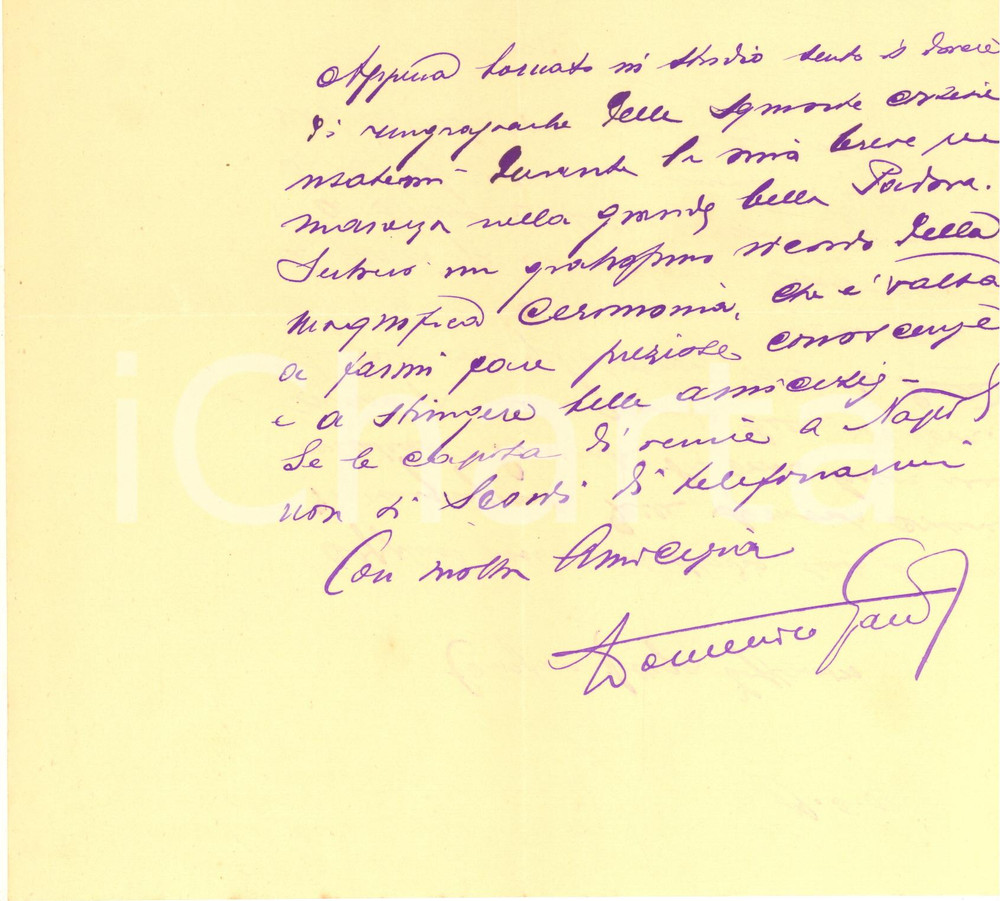 Appena tornato in studio sento il dovere
di ringraziarla delle squisite cortesie
usatemi durante la mia breve per
manenza nella grande bella Padova.
Serberò un gratissimo ricordo della
magnifica cerimonia, che è valsa
a farmi fare preziose conoscenze
e a stringere belle amicizie –
Se le capita di venire a Napoli
non si scordi di telefonarmi
Con molta amicizia
Domenico
iCharta